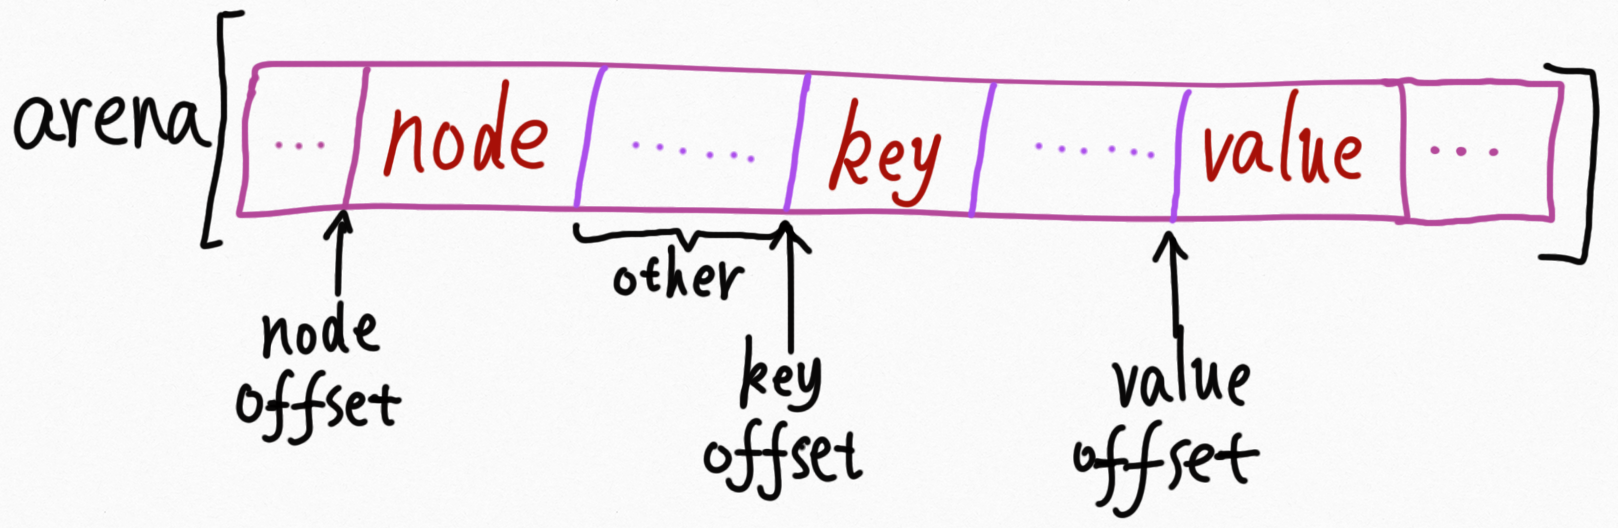 arena
... node ...... key ...... value ...
other
node
offset
key
offset
value
offset